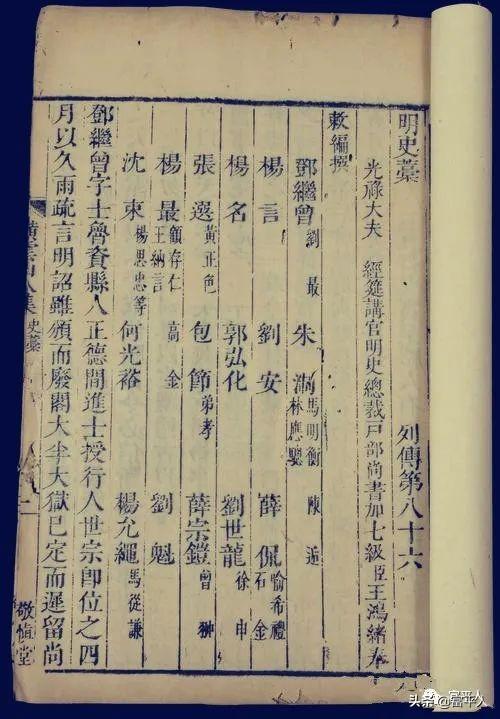 明史藁 列傳第八十六
光祿大夫 經筵講官明史總裁戶部尚書加七級臣王鴻緒奉
敕編撰
鄧繼曾 劉最 朱淛 馬明衡 陳逅 林應驄
楊言 劉安 薛侃 喻希禮 石金
楊名 郭弘化 劉世龍 徐申
張選 黃正色 包節 弟孝 薛宗鎧 曾翀
楊最 顧存仁 高金 王納言 劉魁
沈束 楊思忠等 何光裕 楊允繩 馬從謙
鄧繼曾字士魯資縣人正德間進士授行人世宗卽位之四
月以久雨疏言明詔雖頒而廢閣大半大獄已定而遲留尚
橫雲山人集 史藁 敬愼堂
富平人
头条@富平人